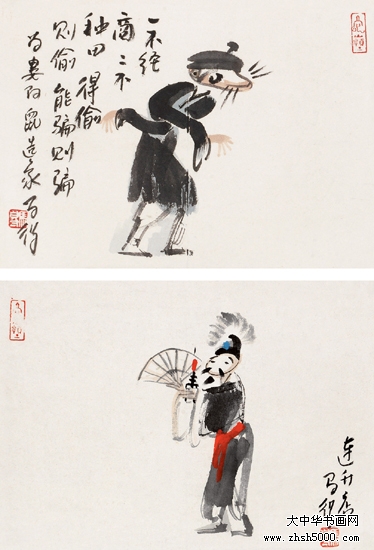 一不经
商二不
种田得偷
则偷能骗则骗
为娄阿鼠造象 马得
连升店
马得
大中华书画网
www.zhsh5000.com